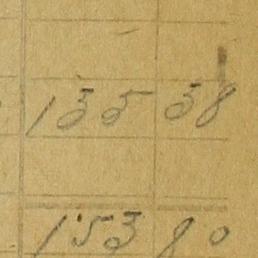 135 38
153 80